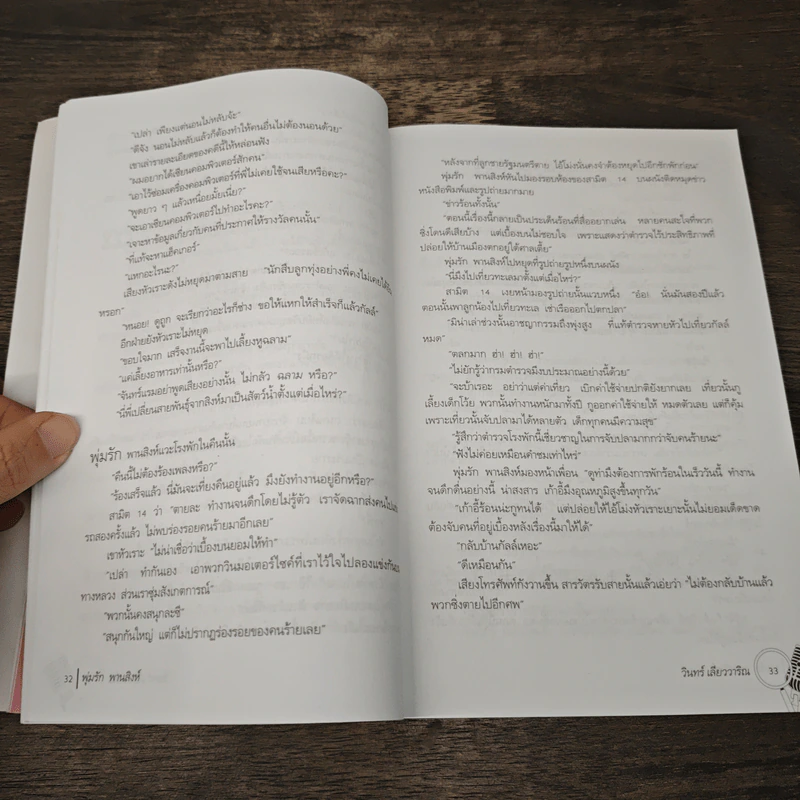 "เปล่า เพียงแต่นอนไม่หลับจ้ะ"
"ดีจัง นอนไม่หลับแล้วก็ต้องทำให้คนอื่นไม่ต้องนอนด้วย"
เขาเล่ารายละเอียดของคดีนี้ให้หล่อนฟัง
"ผมอยากได้เซียนคอมพิวเตอร์สักคน"
"เอาไว้ซ่อมเครื่องคอมพิวเตอร์ที่พี่ไม่เคยใช้จนเสียหรือคะ?"
"พูดยาว ๆ แล้วเหนื่อยมั้ยเนี่ย?"
"จะเอาเซียนคอมพิวเตอร์ไปทำอะไรคะ?"
"เจาะหาข้อมูลเกี่ยวกับคนที่ประกาศให้รางวัลคนนั้น"
"ที่แท้จะหาแฮ็คเกอร์"
"แหกอะไรนะ?"
เสียงหัวเราะดังไม่หยุดมาตามสาย "นักสืบลูกทุ่งอย่างพี่คงไม่เคยได้ยิน
หรอก"
"หนอย! ดูถูก จะเรียกว่าอะไรก็ช่าง ขอให้แหกให้สำเร็จก็แล้วกัลล์"
อีกฝ่ายยังหัวเราะไม่หยุด
"ขอบใจมาก เสร็จงานนี้จะพาไปเลี้ยงหูฉลาม"
"แค่เลี้ยงอาหารเท่านั้นหรือ?"
"จันทร์แรมอย่าพูดเสียงอย่างนั้น ไม่กลัว ฉลาม หรือ?"
"นี่พี่เปลี่ยนสายพันธุ์จากสิงห์มาเป็นสัตว์น้ำตั้งแต่เมื่อไหร่?"
พุ่มรัก พานสิงห์แวะโรงพักในคืนนั้น
"คืนนี้ไม่ต้องร้องเพลงหรือ?"
"ร้องเสร็จแล้ว นี่มันจะเที่ยงคืนอยู่แล้ว มึงยังทำงานอยู่อีกหรือ?"
สามิต 14 ว่า "ตายละ ทำงานจนดึกโดยไม่รู้ตัว เราจัดฉากส่งคนไปขับ
รถสองครั้งแล้ว ไม่พบร่องรอยคนร้ายมาอีกเลย"
เขาหัวเราะ "ไม่น่าเชื่อว่าเบื้องบนยอมให้ทำ"
"เปล่า ทำกันเอง เอาพวกวินมอเตอร์ไซค์ที่เราไว้ใจไปลองแข่งกันบน
ทางหลวง ส่วนเราซุ่มสังเกตการณ์"
"พวกนั้นคงสนุกละซี"
"สนุกกันใหญ่ แต่ก็ไม่ปรากฏร่องรอยของคนร้ายเลย"
32 | พุ่มรัก พานสิงห์
"หลังจากที่ลูกชายรัฐมนตรีตาย ไอ้โม่งนั่นคงจำต้องหยุดไปอีกซักพักก่อน"
พุ่มรัก พานสิงห์หันไปมองรอบห้องของสามิต 14 บนผนังติดหมุดข่าว
หนังสือพิมพ์และรูปถ่ายมากมาย
"ข่าวร้อนทั้งนั้น"
"ตอนนี้เรื่องนี้กลายเป็นประเด็นร้อนที่สื่ออยากเล่น หลายคนสะใจที่พวก
ซิ่งโดนดีเสียบ้าง แต่เบื้องบนไม่ชอบใจ เพราะแสดงว่าตำรวจไร้ประสิทธิภาพที่
ปล่อยให้บ้านเมืองตกอยู่ใต้ศาลเตี้ย"
พุ่มรัก พานสิงห์ไปหยุดที่รูปถ่ายรูปหนึ่งบนผนัง
"นี่มึงไปเที่ยวทะเลมาตั้งแต่เมื่อไหร่?"
สามิต 14 เงยหน้ามองรูปถ่ายนั้นแวบหนึ่ง "อ๋อ! นั่นมันสองปีแล้ว
ตอนนั้นพาลูกน้องไปเที่ยวทะเล เช่าเรือออกไปตกปลา"
"มิน่าเล่าช่วงนั้นอาชญากรรมถึงพุ่งสูง ที่แท้ตำรวจหายหัวไปเที่ยวกัลล์
หมด"
"ตลกมาก ฮ่า! ฮ่า! ฮ่า!"
"ไม่ยักรู้ว่ากรมตำรวจมีงบประมาณอย่างนี้ด้วย"
"จะบ้าเรอะ อย่าว่าแต่ค่าเที่ยว เบิกค่าใช้จ่ายปกติยังยากเลย เที่ยวนั้นกู
เลี้ยงเด็กโว้ย พวกนั้นทำงานหนักมาทั้งปี กูออกค่าใช้จ่ายให้ หมดตัวเลย แต่ก็คุ้ม
เพราะเที่ยวนั้นจับปลามาได้หลายตัว เด็กทุกคนมีความสุข"
"รู้สึกว่าตำรวจโรงพักนี้เชี่ยวชาญในการจับปลามากกว่าจับคนร้ายนะ"
"ฟังไม่ค่อยเหมือนคำชมเท่าไหร่"
พุ่มรัก พานสิงห์มองหน้าเพื่อน "ดูท่ามึงต้องการพักร้อนในเร็ววันนี้ ทำงาน
จนดึกดื่นอย่างนี้ น่าสงสาร เก้าอี้มึงอุณหภูมิสูงขึ้นทุกวัน"
"เก้าอี้ร้อนน่ะกูทนได้ แต่ปล่อยให้ไอ้โม่งหัวเราะเยาะนั้นไม่ยอมเด็ดขาด
ต้องจับคนที่อยู่เบื้องหลังเรื่องนี้มาให้ได้"
"กลับบ้านกัลล์เหอะ"
"ดีเหมือนกัน"
เสียงโทรศัพท์กังวานขึ้น สารวัตรรับสายนั้นแล้วเอ่ยว่า "ไม่ต้องกลับบ้านแล้ว
พวกซิ่งตายไปอีกศพ"
วินทร์ เลียววาริณ 33